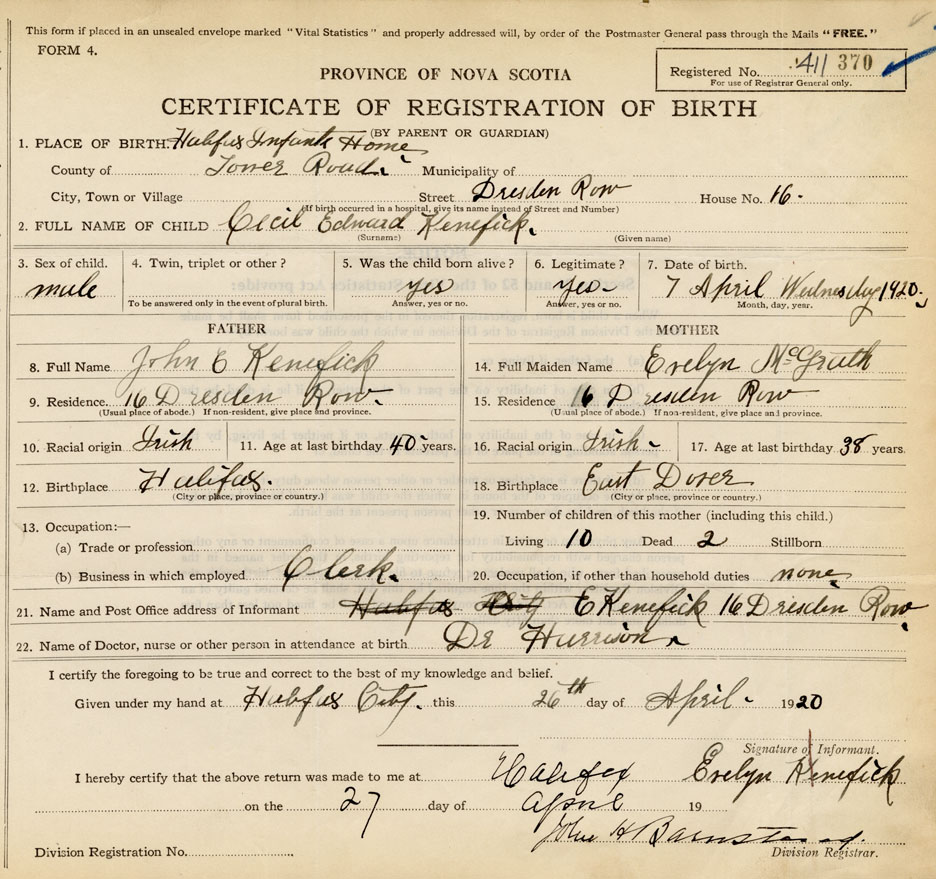 This form if placed in an unsealed envelope marked "Vital Statistics" and properly addressed will, by order of the Postmaster General pass through the Mails "FREE."
FORM 4.
PROVINCE OF NOVA SCOTIA
Registered No. 411 370
For use of Registrar General only.
CERTIFICATE OF REGISTRATION OF BIRTH
(BY PARENT OR GUARDIAN)
1. PLACE OF BIRTH: Halifax Infants Home
County of Tower Road. Municipality of
City, Town or Village Street Dresden Row House No. 16-
(If birth occurred in a hospital, give its name instead of Street and Number)
2. FULL NAME OF CHILD Cecil Edward Kenefick.
(Surname) (Given name)
3. Sex of child. 4. Twin, triplet or other? 5. Was the child born alive? 6. Legitimate? 7. Date of birth.
male yes yes- 7 April Wednesday 1920
To be answered only in the event of plural birth. Answer, yes or no. Answer, yes or no. Month, day, year.
FATHER
8. Full Name John E Kenefick
9. Residence. 16 Dresden Row-
(Usual place of abode.) If non-resident, give place and province.
10. Racial origin Irish 11. Age at last birthday 40 years.
12. Birthplace Halifax.
(City or place, province or country.)
13. Occupation:—
(a) Trade or profession
(b) Business in which employed Clerk.
MOTHER
14. Full Maiden Name Evelyn McGrath
15. Residence 16 Dresden Row
(Usual place of abode.) If non-resident, give place and province.
16. Racial origin Irish- 17. Age at last birthday 38 years.
18. Birthplace East Dover
(City or place, province or country.)
19. Number of children of this mother (including this child.)
Living 10 Dead 2 Stillborn
20. Occupation, if other than household duties none
21. Name and Post Office address of Informant Halifax City E Kenefick 16 Dresden Row
22. Name of Doctor, nurse or other person in attendance at birth Dr Harrison
I certify the foregoing to be true and correct to the best of my knowledge and belief.
Given under my hand at Halifax City. this 26th day of April- 1920
Signature of Informant.
I hereby certify that the above return was made to me at Halifax Evelyn Kenefick
on the 27 day of April 19
John H Barnstead.
Division Registration No. Division Registrar.